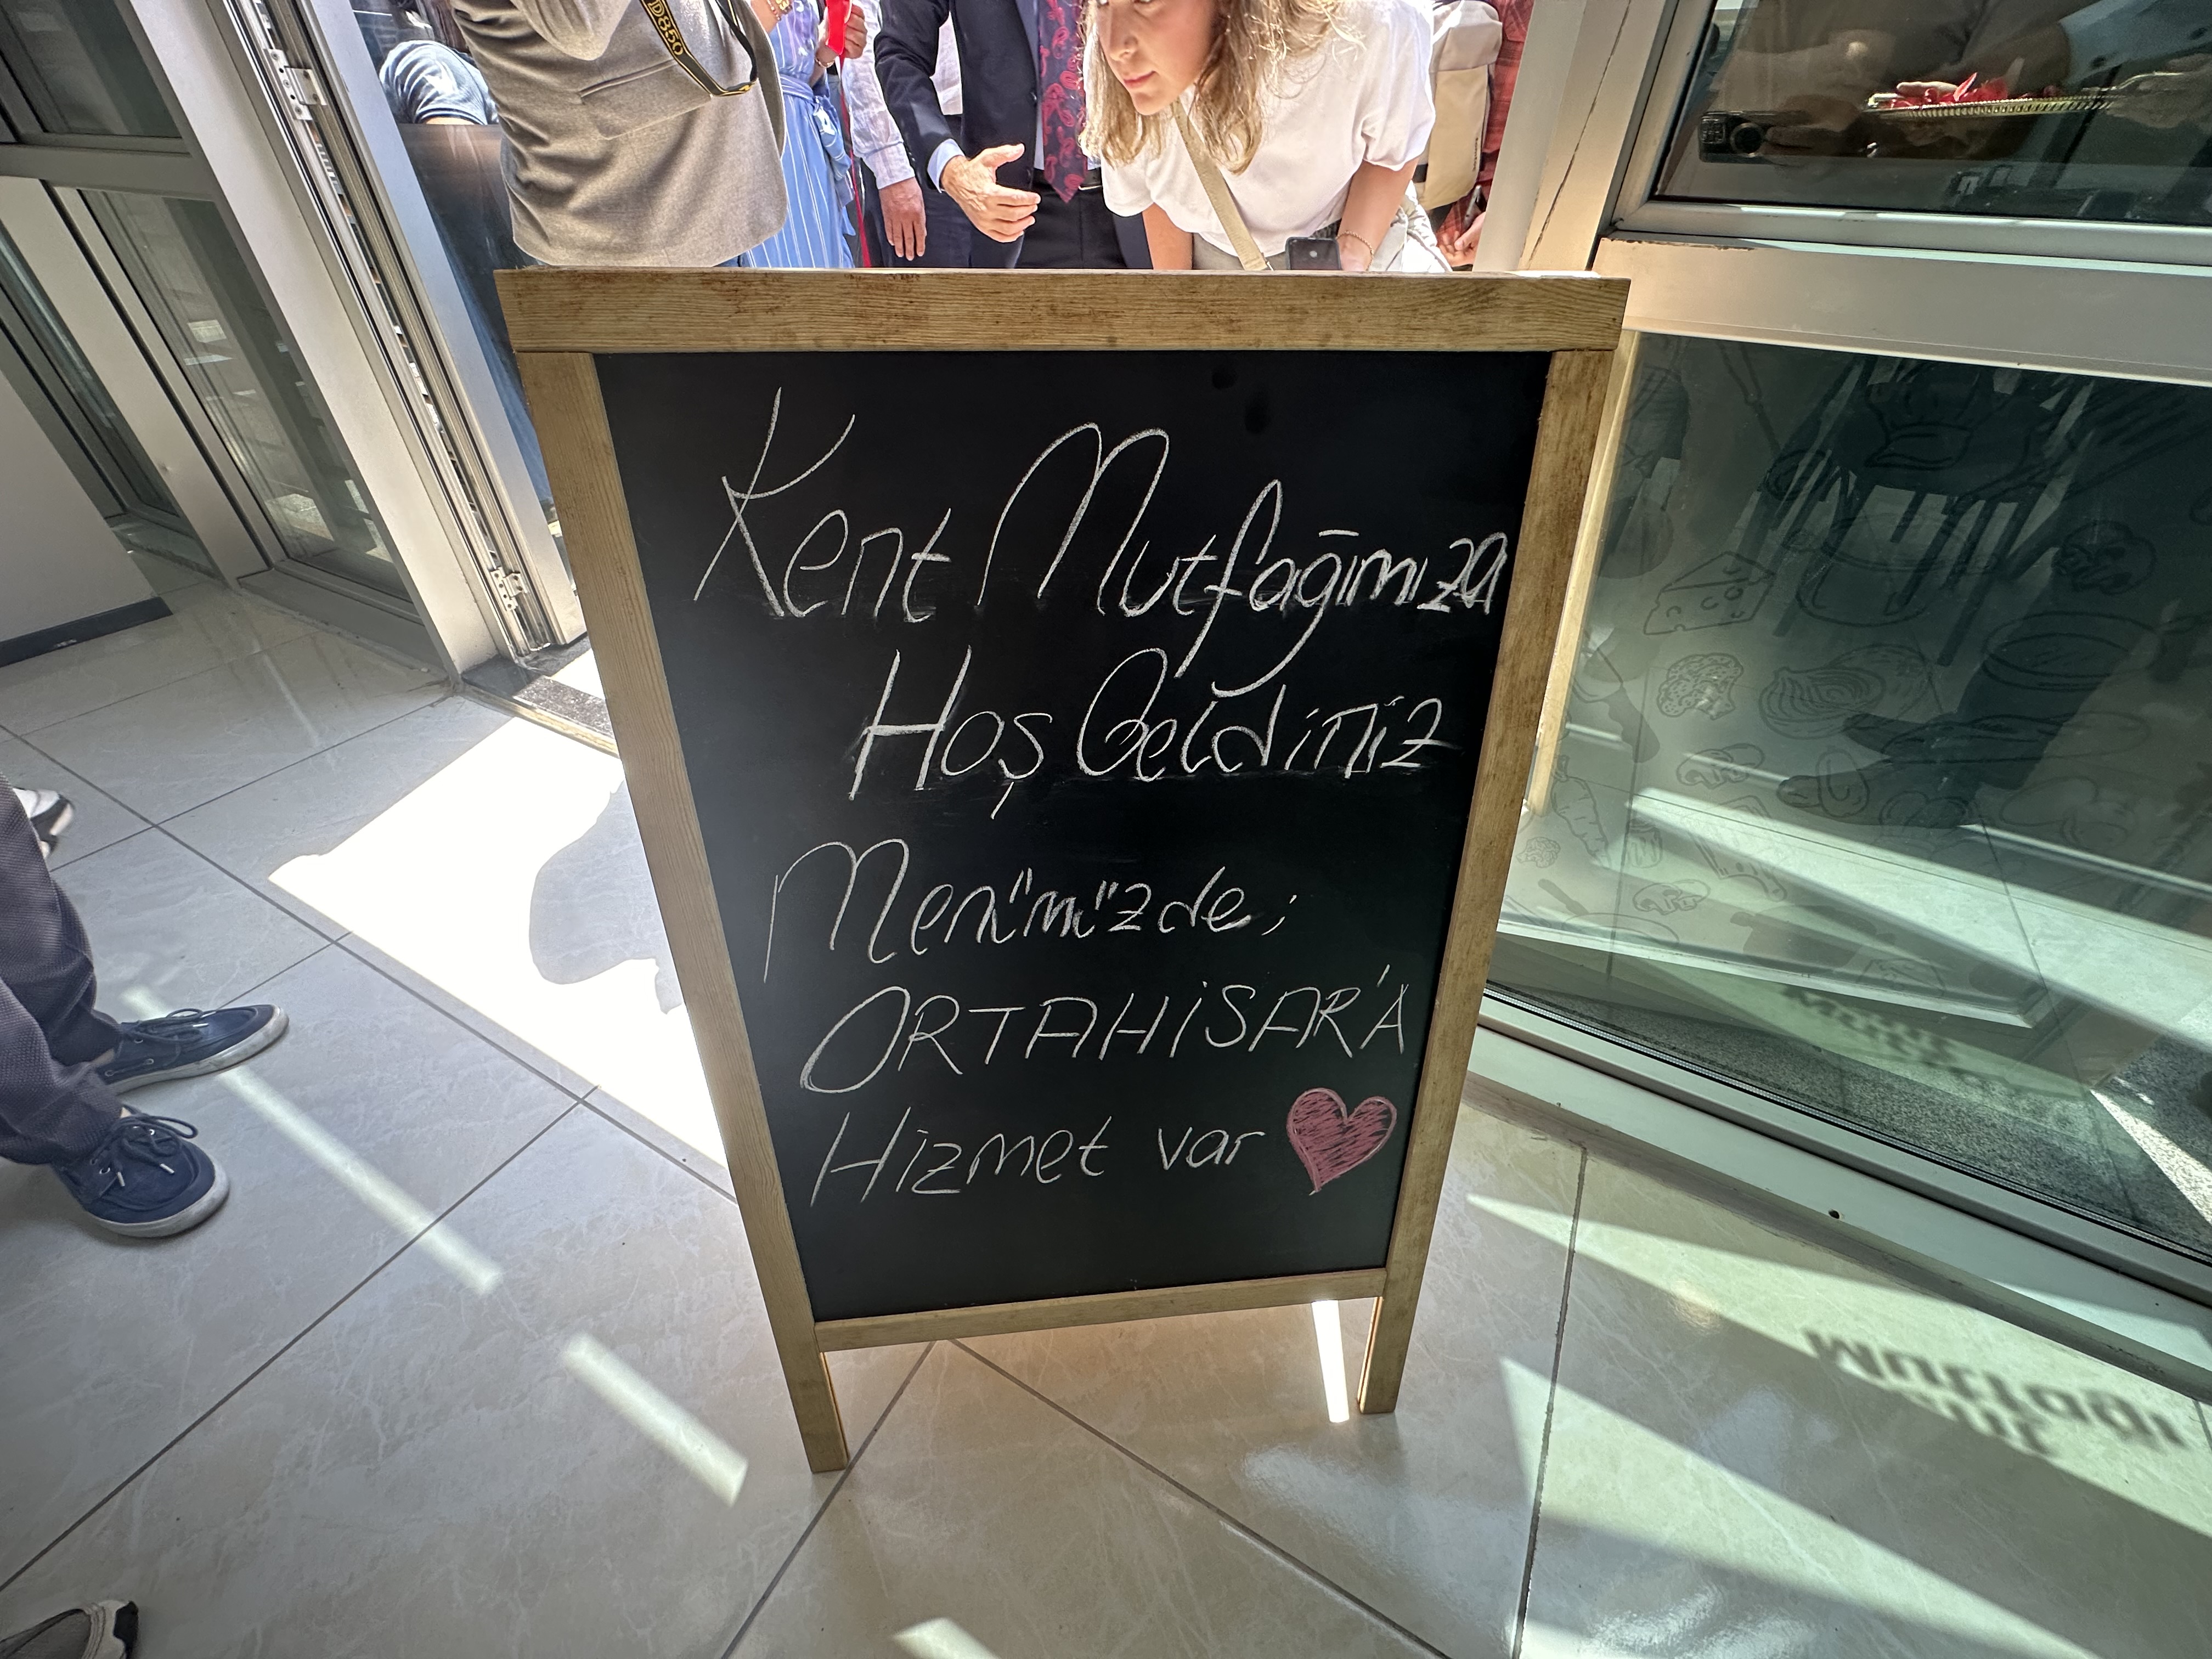 D850
Kent Mutfağımıza
Hoş Geldiniz
Menümüzde;
ORTAHİSAR'A
Hizmet var
Mutfağı